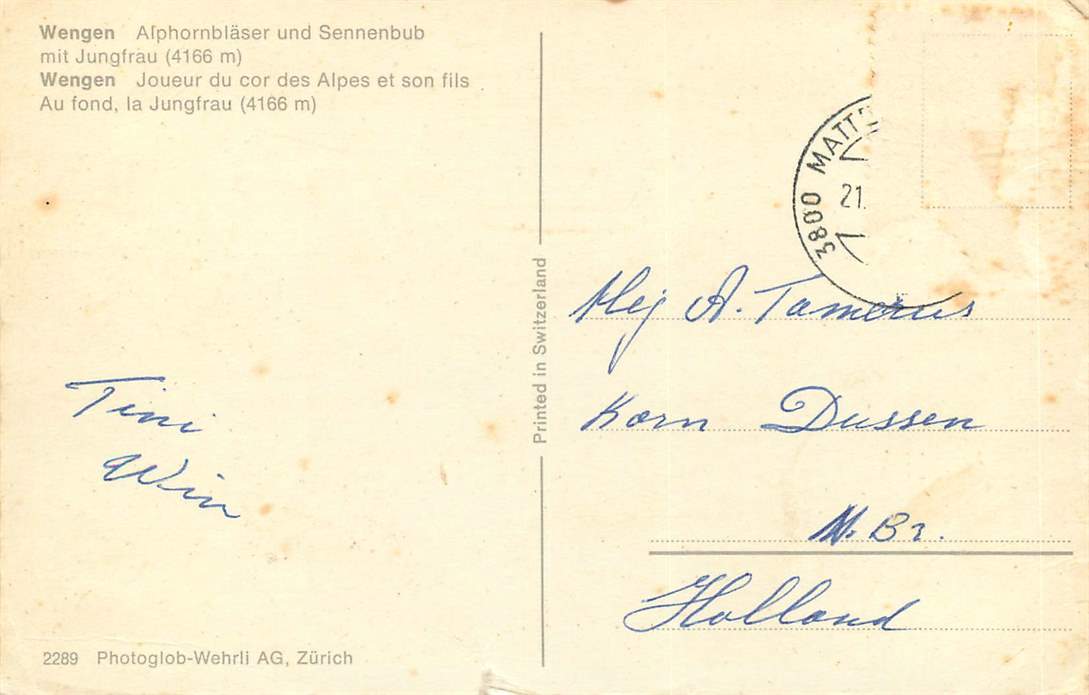 Wengen Alphornbläser und Sennenbub
mit Jungfrau (4166 m)
Wengen Joueur du cor des Alpes et son fils
Au fond, la Jungfrau (4166 m)
3800 MATT
21.
Printed in Switzerland
Mej A. Tamerus
Korn Dussen
N. Br.
Holland
Tini
Wim
2289 Photoglob-Wehrli AG, Zürich